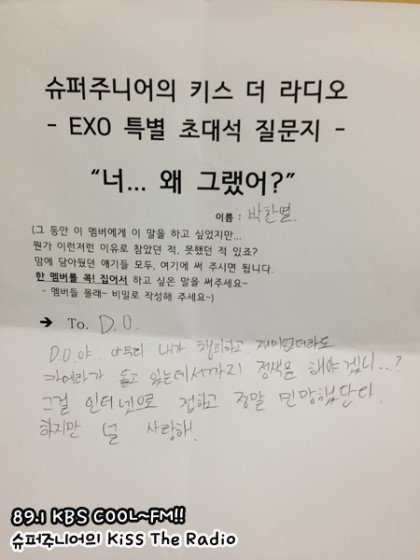 슈퍼주니어의 키스 더 라디오
- EXO 특별 초대석 질문지 -
“너... 왜 그랬어?”
이름 : 박찬열.
(그 동안 이 멤버에게 이 말을 하고 싶었지만...
뭔가 이런저런 이유로 참았던 적, 못했던 적 있죠?
맘에 담아뒀던 얘기들 모두, 여기에 써 주시면 됩니다.
한 멤버를 콕! 집어서 하고 싶은 말을 써주세요~
- 멤버들 몰래~ 비밀로 작성해 주세요~)
➔ To. D.O.
D.O.야.. 아무리 내가 해피하고 재미없더라도
카메라가 돌고 있는데서까지 정색을 해야겠니..?
그걸 인터넷으로 접하고 정말 민망했단다.
하지만 널 사랑해.
89.1 KBS COOL~FM!!
슈퍼주니어의 Kiss The Radio